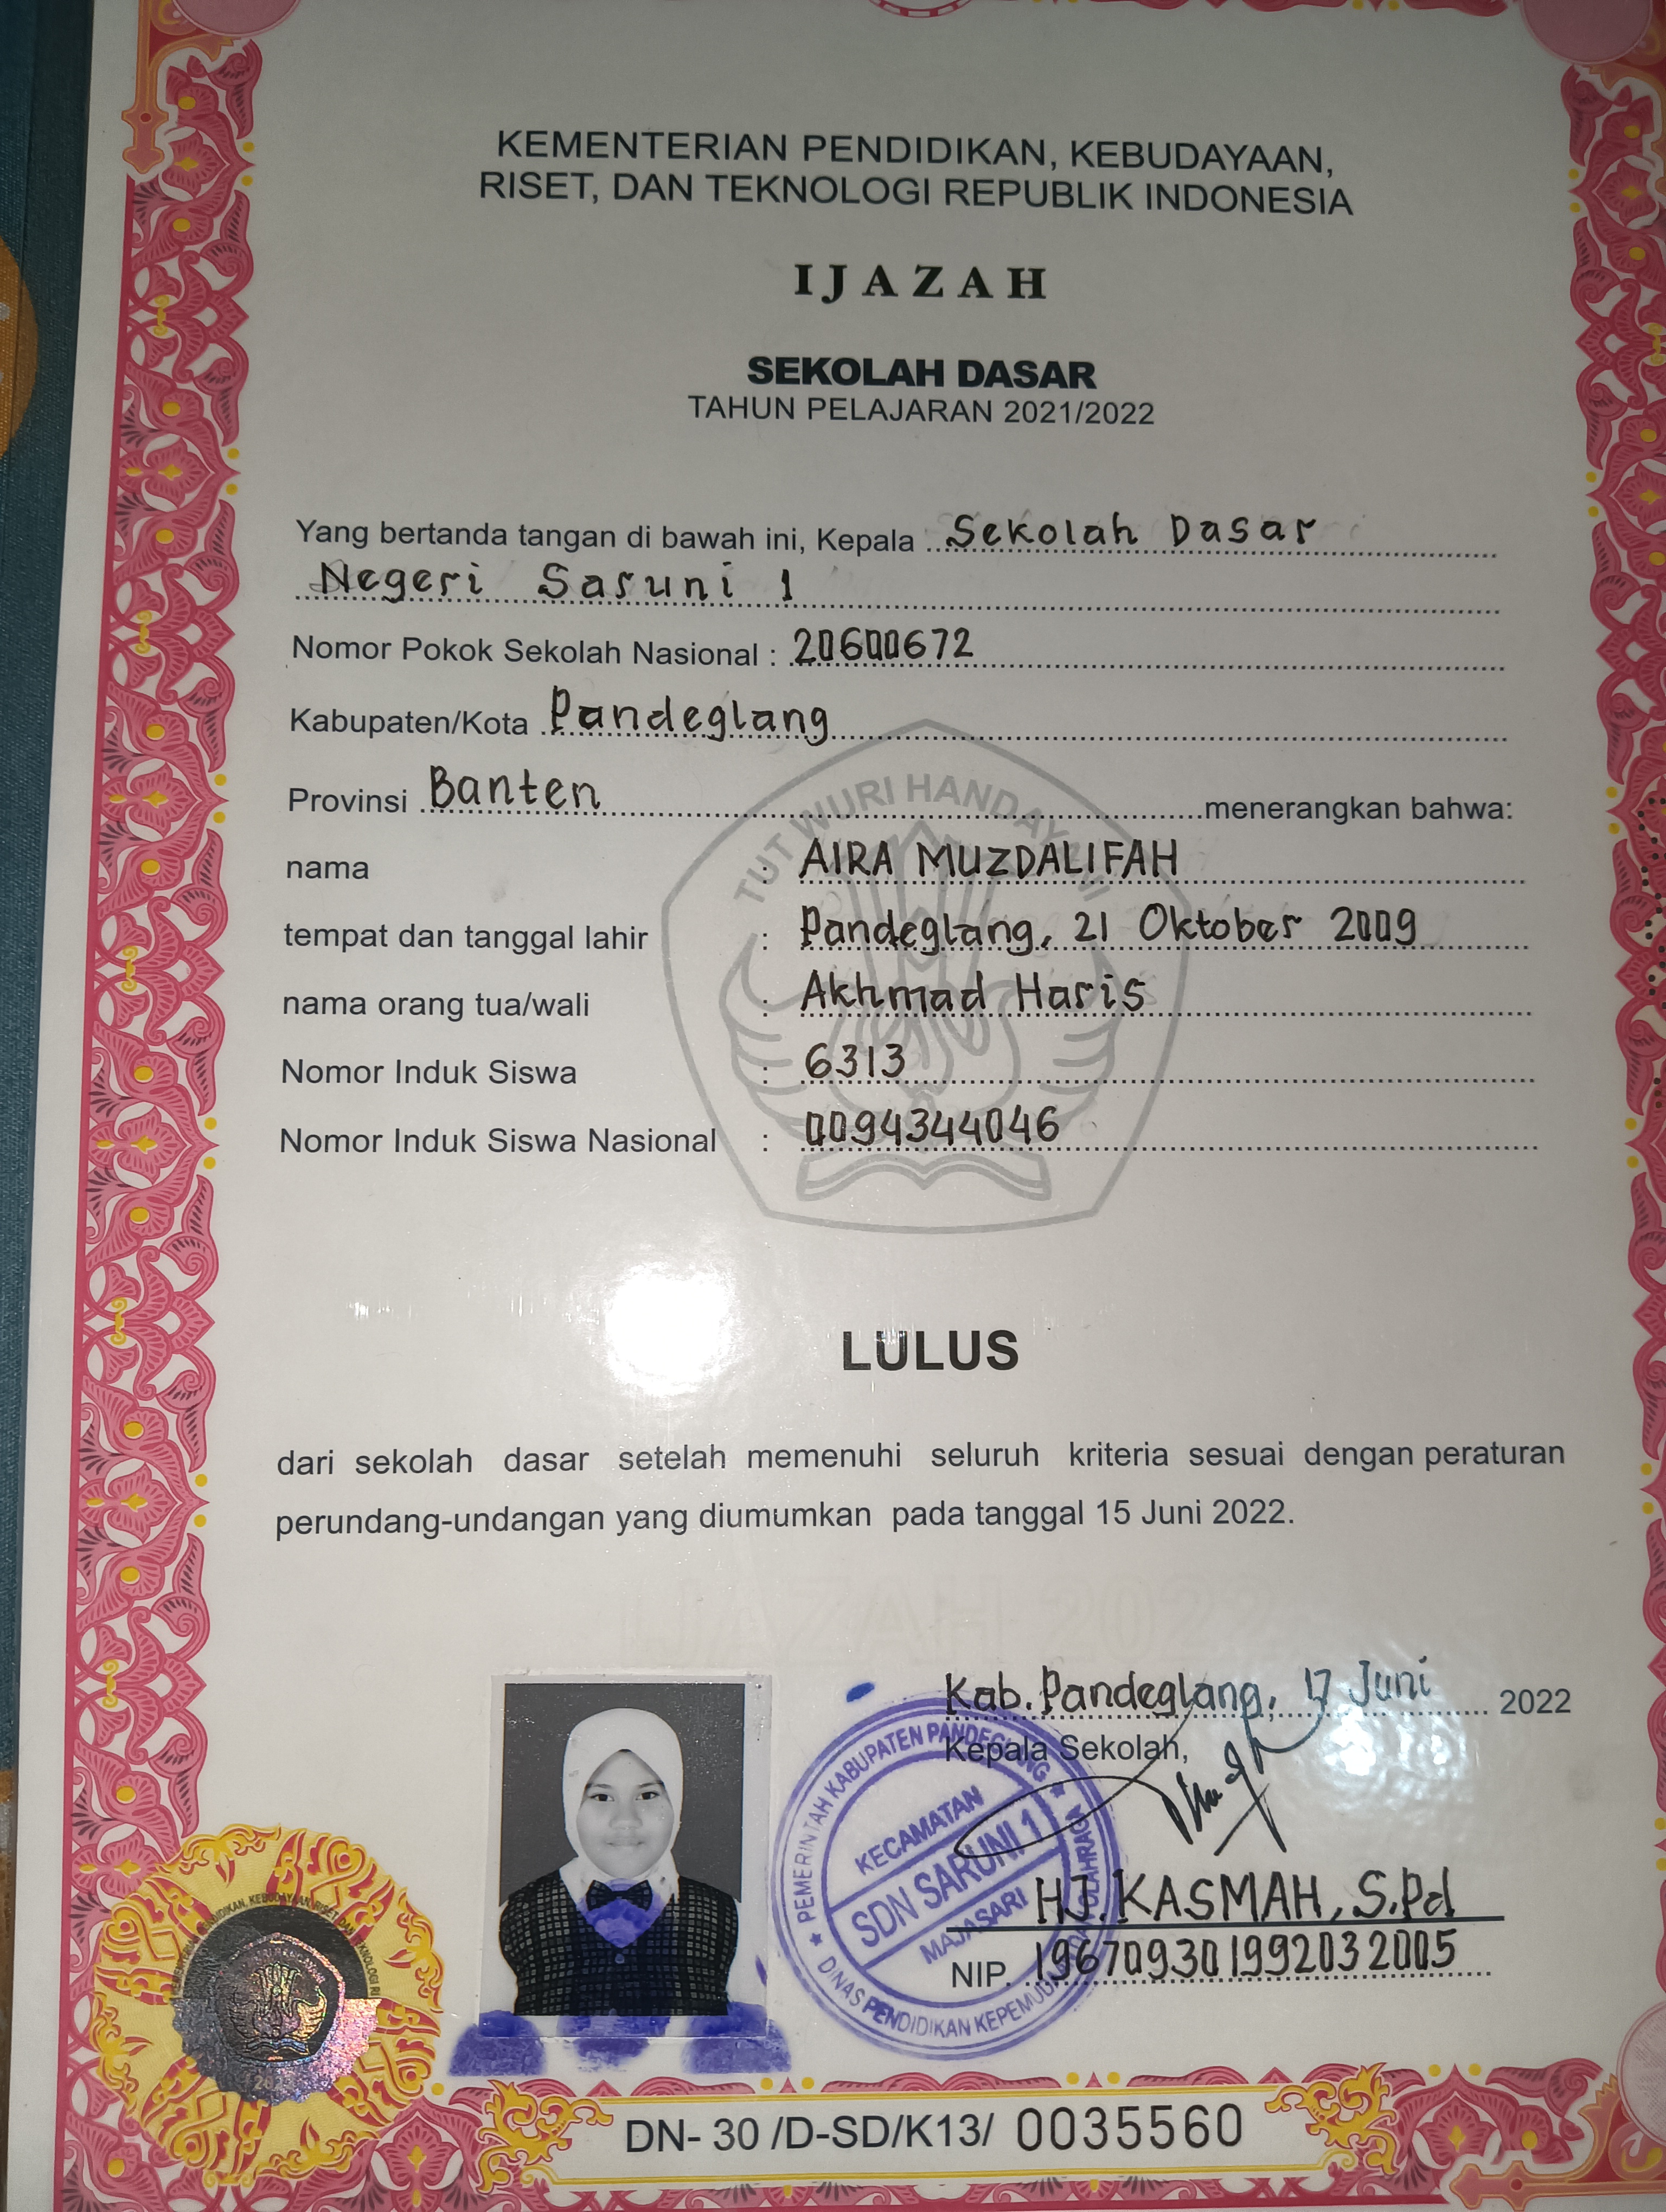 KEMENTERIAN PENDIDIKAN, KEBUDAYAAN,
RISET, DAN TEKNOLOGI REPUBLIK INDONESIA
IJAZAH
SEKOLAH DASAR
TAHUN PELAJARAN 2021/2022
Yang bertanda tangan di bawah ini, Kepala Sekolah Dasar
Negeri Saruni 1
Nomor Pokok Sekolah Nasional : 20600672
Kabupaten/Kota Pandeglang
Provinsi Banten menerangkan bahwa:
TUT WURI HANDAYANI
nama : AIRA MUZDALIFAH
tempat dan tanggal lahir : Pandeglang, 21 Oktober 2009
nama orang tua/wali : Akhmad Haris
Nomor Induk Siswa : 6313
Nomor Induk Siswa Nasional : 0094344046
LULUS
dari sekolah dasar setelah memenuhi seluruh kriteria sesuai dengan peraturan
perundang-undangan yang diumumkan pada tanggal 15 Juni 2022.
IJAZAH 2022
Kab. Pandeglang, 17 Juni 2022
Kepala Sekolah,
PEMERINTAH KABUPATEN PANDEGLANG
KECAMATAN
SDN SARUNI 1
MAJASARI
DINAS PENDIDIKAN KEPEMUDAAN OLAHRAGA
HJ. KASMAH, S.Pd
NIP. 196709301992032005
DN- 30 /D-SD/K13/ 0035560